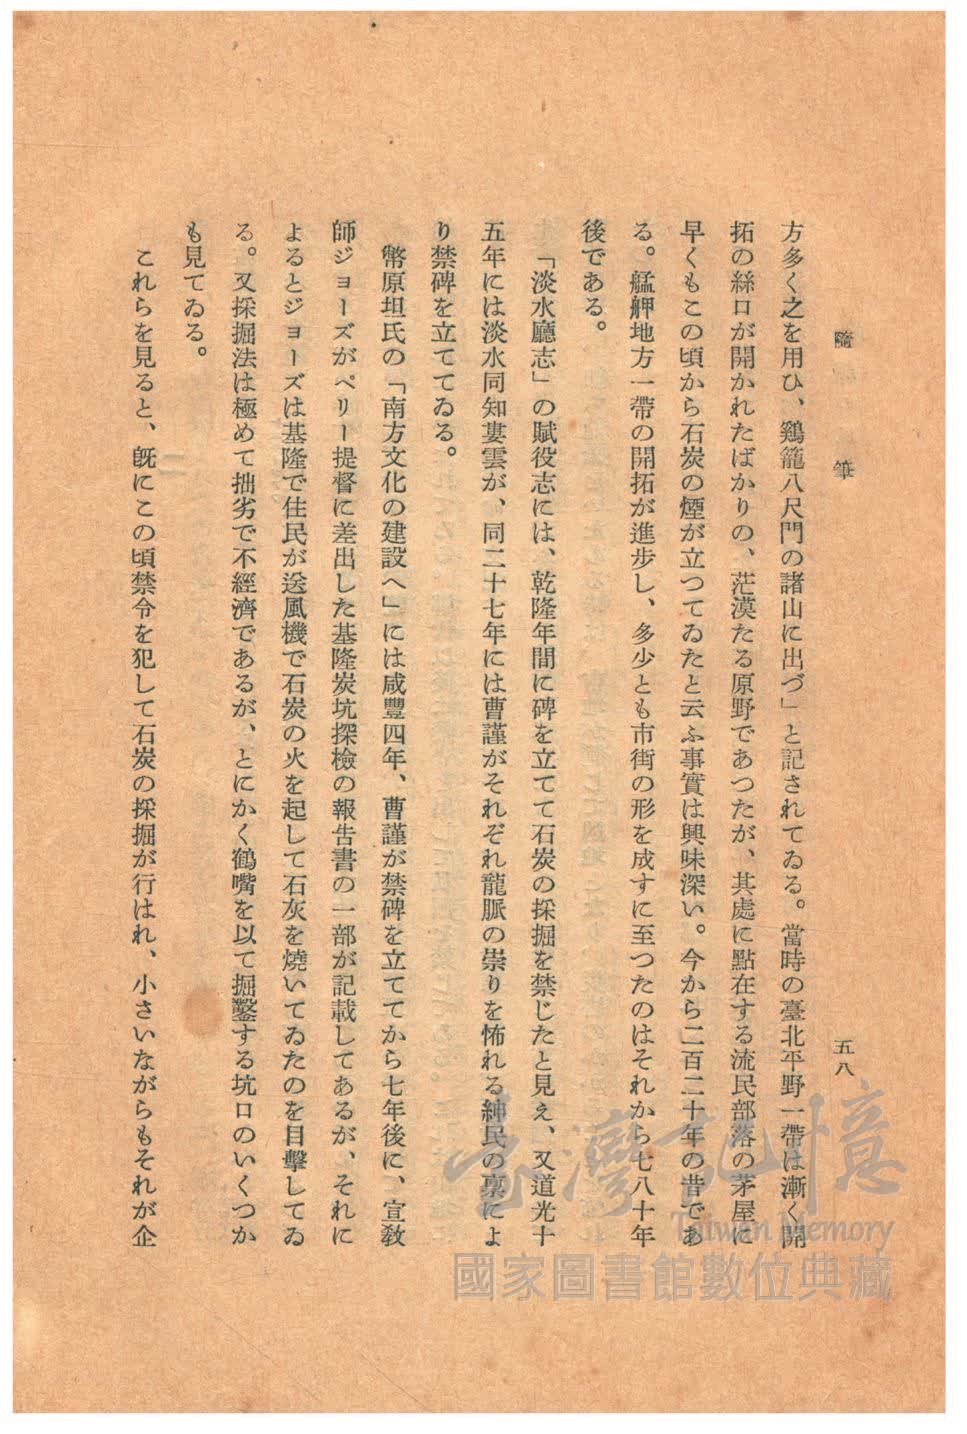 隨筆
五八
方多く之を用ひ、鷄籠八尺門の諸山に出づ」と記されてゐる。當時の臺北平野一帶は漸く開
拓の絲口が開かれたばかりの、茫漠たる原野であつたが、其處に點在する流民部落の茅屋に
早くもこの頃から石炭の煙が立つてゐたと云ふ事實は興味深い。今から二百二十年の昔であ
る。艋舺地方一帶の開拓が進步し、多少とも市街の形を成すに至つたのはそれから七八十年
後である。
「淡水廳志」の賦役志には、乾隆年間に碑を立てて石炭の採掘を禁じたと見え、又道光十
五年には淡水同知婁雲が、同二十七年には曹謹がそれぞれ龍脈の祟りを怖れる紳民の稟によ
り禁碑を立ててゐる。
幣原坦氏の「南方文化の建設へ」には咸豐四年、曹謹が禁碑を立ててから七年後に、宣敎
師ジョーズがペリー提督に差出した基隆炭坑探檢の報告書の一部が記載してあるが、それに
よるとジョーズは基隆で住民が送風機で石炭の火を起して石灰を燒いてゐたのを目擊してゐ
る。又採掘法は極めて拙劣で不經濟であるが、とにかく鶴嘴を以て掘鑿する坑口のいくつか
も見てゐる。
これらを見ると、旣にこの頃禁令を犯して石炭の採掘が行はれ、小さいながらもそれが企
臺灣記憶
Taiwan Memory
國家圖書館數位典藏